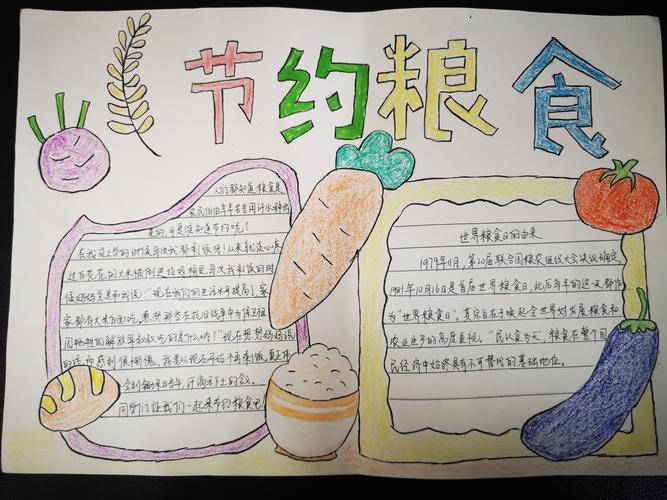 节约粮食
人们都知道粮食是
农民伯伯年年苦苦用汗水种出
来的,可是谁知道节约呢?
在我没上学的时候每次我都剩饭
过白花花的大米被倒进垃圾桶里,每次我剩饭的时
候妈妈总是和我说:“现在我们的生活水平提高了,家
家都有大米白面吃
的解放军叔叔吃的是什么吗?”现在想想妈妈说
的话而感到很惭愧,我要从现在开始不再剩饭,真正体
会到锄禾日当午,汗滴禾下土的含义。
同学们让我们一起来节约粮食吧!
世界粮食日的由来
1979年11月,第20届联合国粮农组织大会决议确定,
1981年10月16日是首届世界粮食日,此后每年的这一天都作
为“世界粮食日”。其宗旨在于唤起全世界对发展粮食和
农业生产的高度重视。“民以食为天”,粮食在整个国
民经济中始终具有不可替代的基础地位。